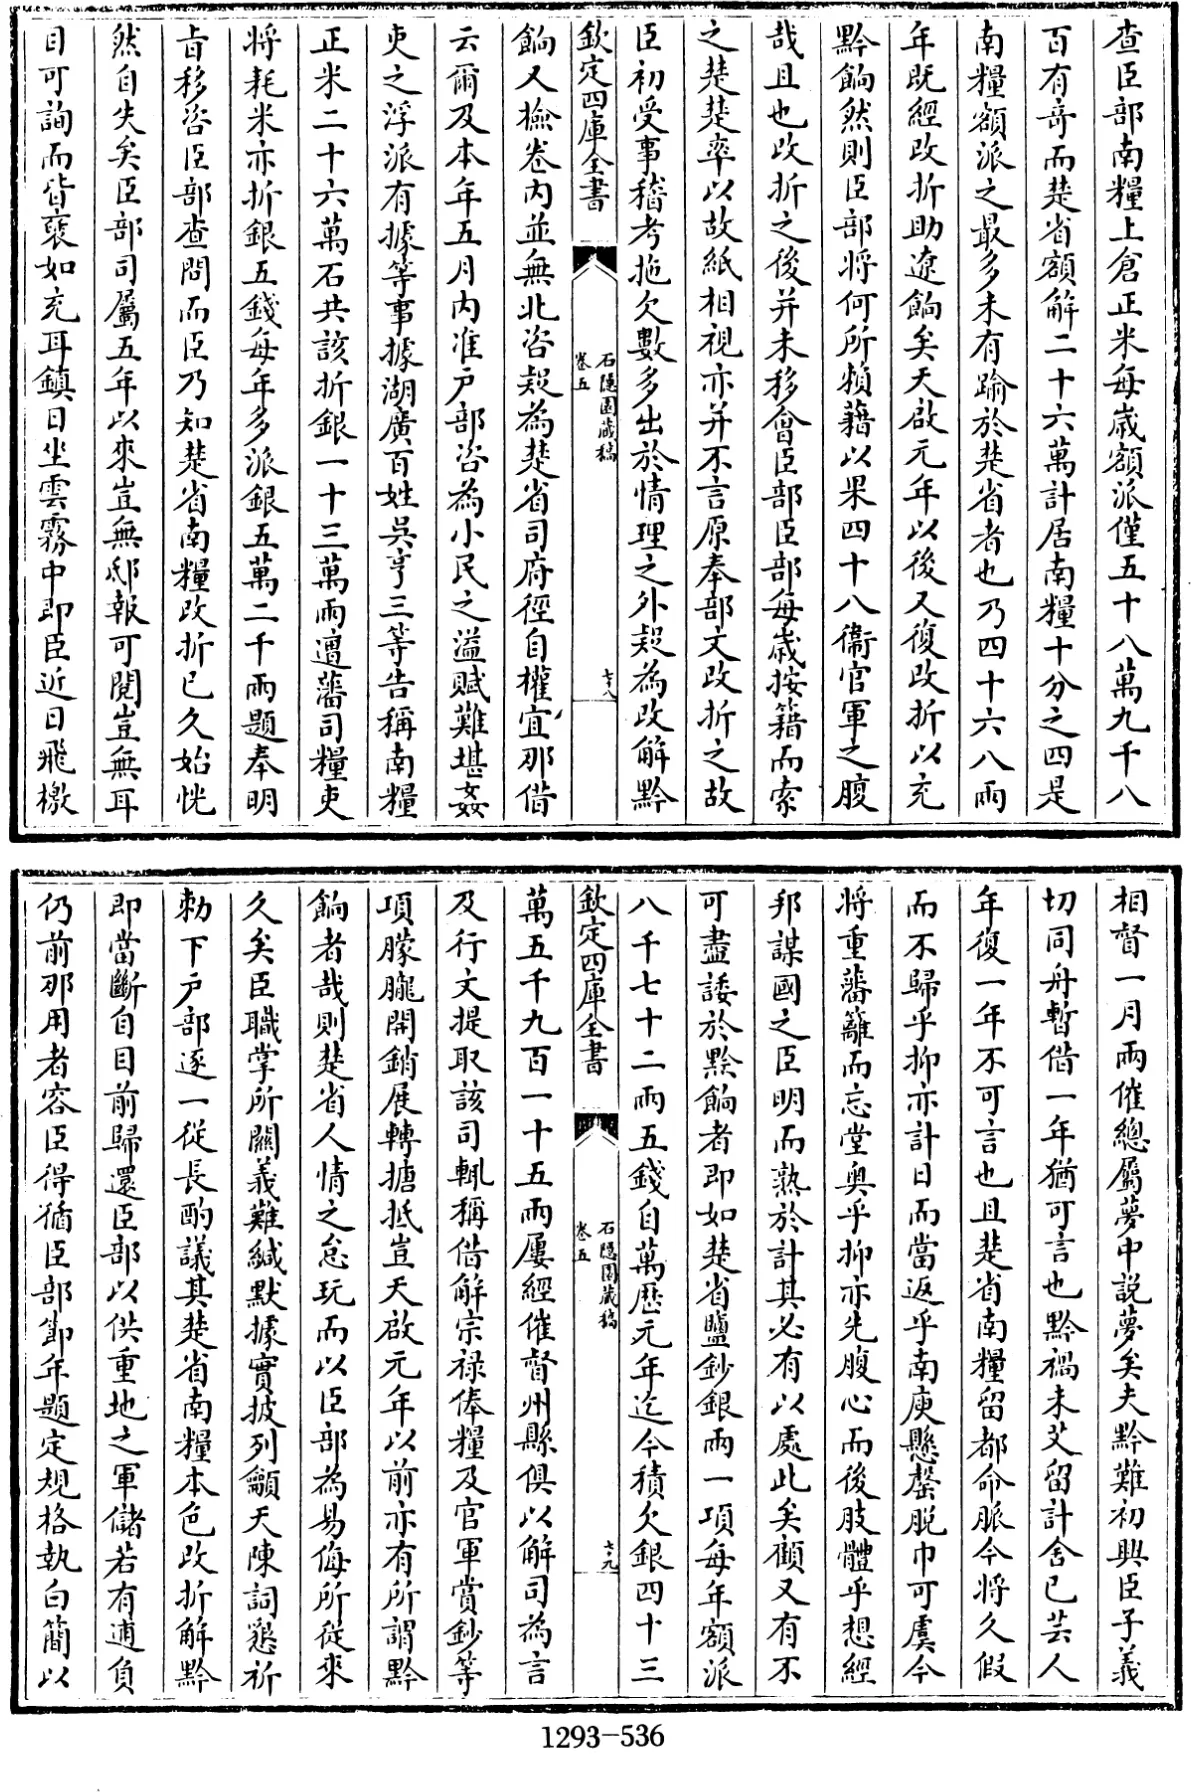 查臣部南糧上倉正米每歲額派僅五十八萬九千八
百有竒而楚省額解二十六萬計居南糧十分之四是
南糧額派之最多未有踰於楚省者也乃四十六八兩
年既經改折助遼餉矣天啟元年以後又復改折以充
黔餉然則臣部將何所頼藉以果四十八衞官軍之腹
哉且也改折之後并未移會臣部臣部每歲按籍而索
之楚楚率以故紙相視亦并不言原奉部文改折之故
臣初受事稽考拖欠數多出於情理之外疑為改解黔
欽定四庫全書
石隱園藏稿
卷五
七十八
餉又檢卷内並無北咨疑為楚省司府徑自權宜那借
云爾及本年五月内准戸部咨為小民之溢賦難堪姦
吏之浮派有據等事據湖廣百姓吳亨三等告稱南糧
正米二十六萬石共該折銀一十三萬兩遭藩司糧吏
將耗米亦折銀五錢每年多派銀五萬二千兩題奉明
旨移咨臣部查問而臣乃知楚省南糧改折已久始恍
然自失矣臣部司屬五年以來豈無邸報可閲豈無耳
目可詢而皆褎如充耳鎮日坐雲霧中即臣近日飛檄
相督一月兩催總屬夢中説夢矣夫黔難初興臣子義
切同舟暫借一年猶可言也黔禍未艾留計舍已芸人
年復一年不可言也且楚省南糧留都命脈今將久假
而不歸乎抑亦計日而當返乎南庾懸罄脱巾可虞今
將重藩籬而忘堂奥乎抑亦先腹心而後肢體乎想經
邦謀國之臣明而熟於計其必有以處此矣顧又有不
可盡諉於黔餉者即如楚省鹽鈔銀兩一項每年額派
八千七十二兩五錢自萬厯元年迄今積欠銀四十三
欽定四庫全書
石隱園藏稿
卷五
七十九
萬五千九百一十五兩屢經催督州縣俱以解司為言
及行文提取該司輒稱借解宗禄俸糧及官軍賞鈔等
項朦朧開銷展轉搪抵豈天啟元年以前亦有所謂黔
餉者哉則楚省人情之怠玩而以臣部為易侮所從來
久矣臣職掌所關義難緘默據實披列籲天陳詞懇祈
勅下戸部逐一從長酌議其楚省南糧本色改折解黔
即當斷自目前歸還臣部以供重地之軍儲若有逋負
仍前那用者容臣得循臣部節年題定規格執白簡以
1293-536